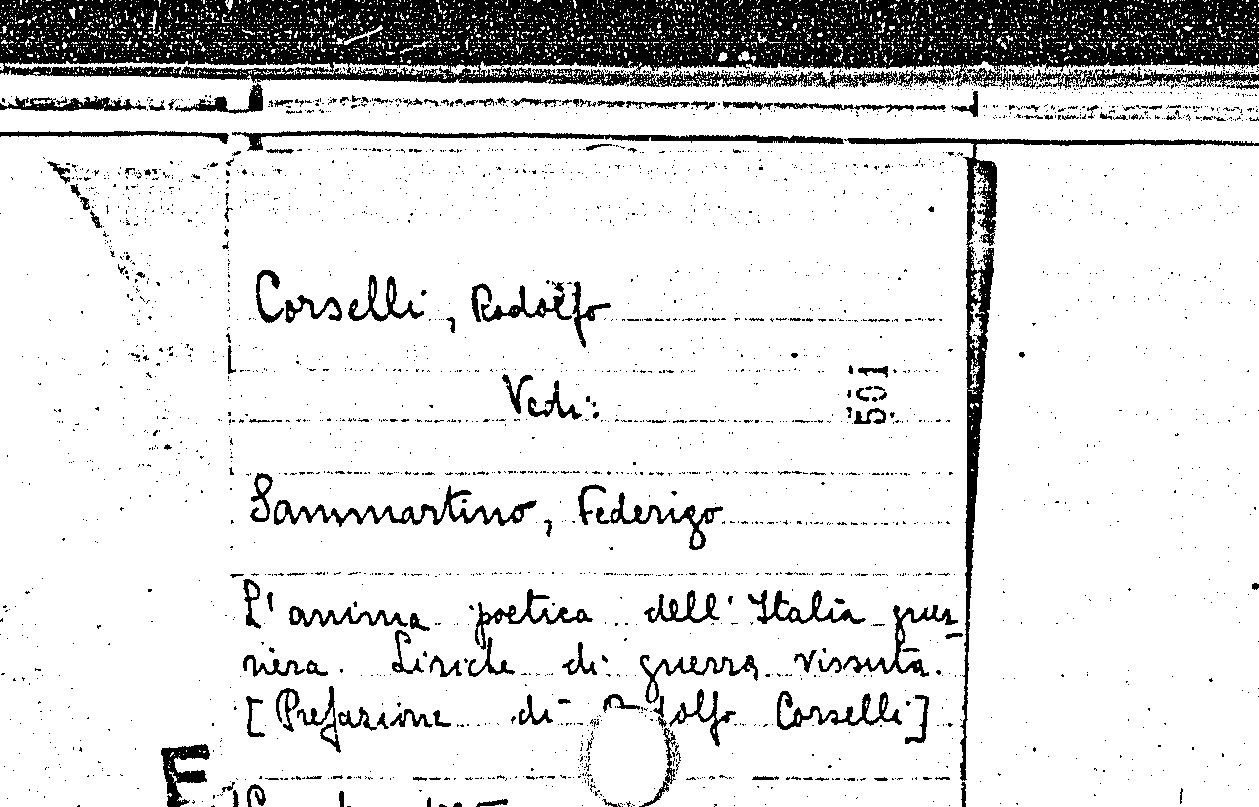 Corselli, Rodolfo
Vedi:
501
Sammartino, Federigo
L'anima poetica dell'Italia guer_
riera. Liriche di guerra vissuta.
[Prefazione di Rodolfo Corselli]
E